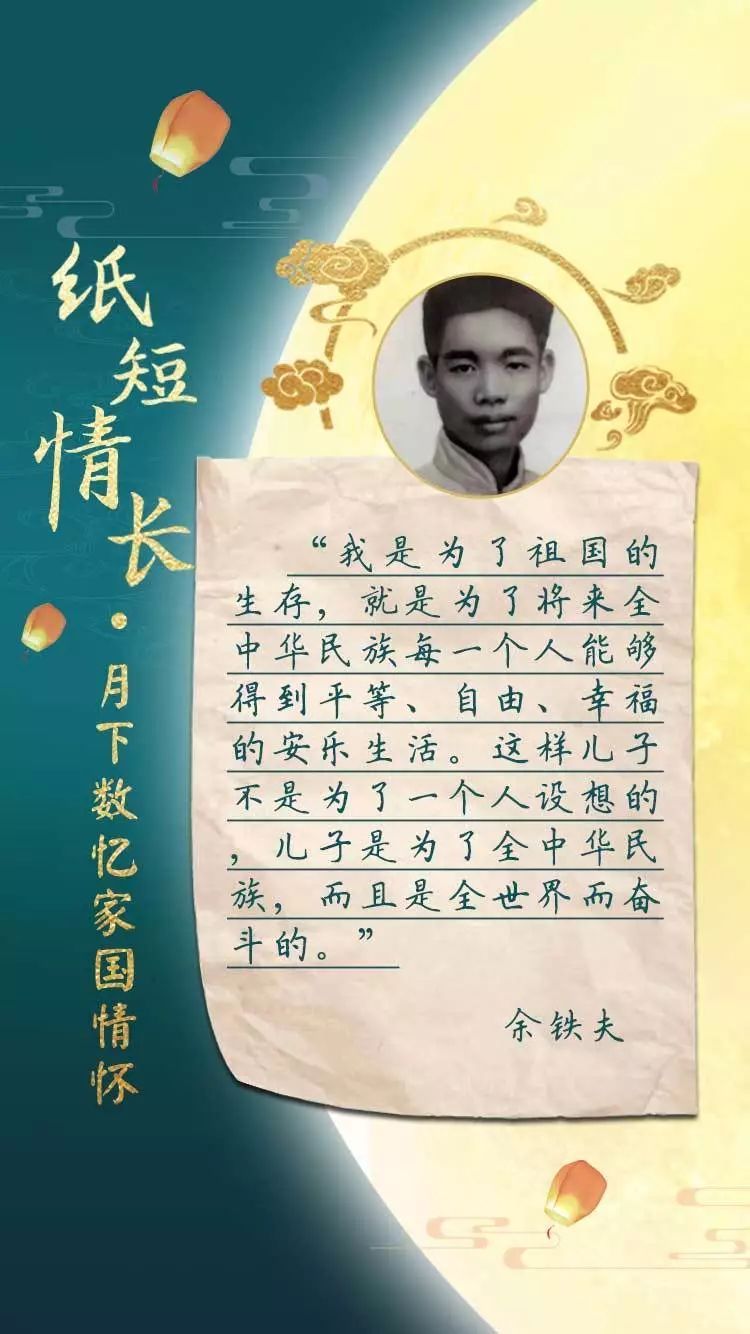 纸短情长·月下数忆家国情怀
“我是为了祖国的
生存，就是为了将来全
中华民族每一个人能够
得到平等、自由、幸福
的安乐生活。这样儿子
不是为了一个人设想的
，儿子是为了全中华民
族，而且是全世界而奋
斗的。”
余铁夫